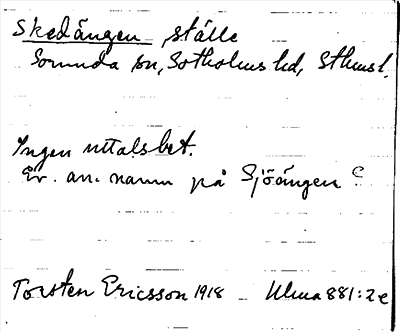 Skedängen, ställe
Sorunda sn, Sotholms hd, Sthms l.
Ingen uttalsbet.
Ev. an. namn på Sjöängen ?
Torsten Ericsson 1918 Ulma 881:2e